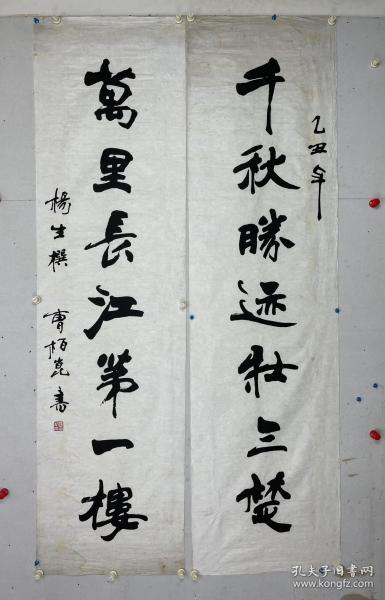 乙丑年
千秋勝迹壮三楚
萬里長江第一樓
楊生撰 曹柏崑書
孔夫子旧书网
book.kongfz.com